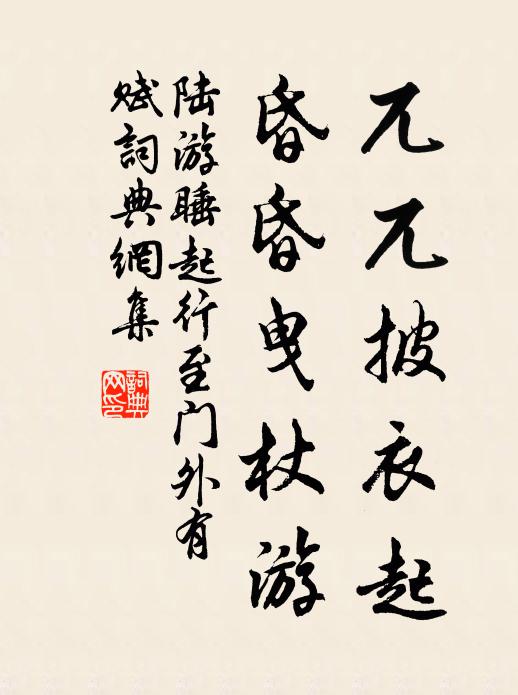 兀兀披衣起
昏昏曳杖游
陆游睡起行至门外有
赋詞典網集
詞典
网印